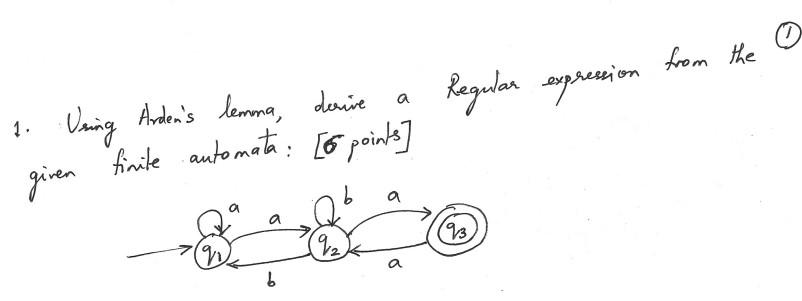 ①
1. Using Arden's lemma, derive a Regular expression from the
given finite automata: [6 points]
a b a
a
q1 q2 q3
b a